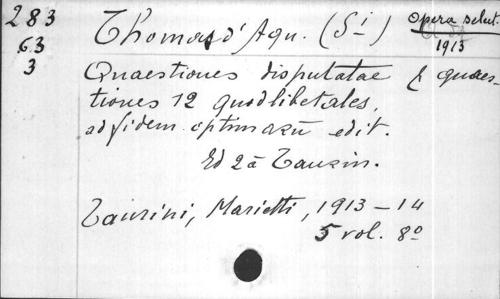 283
63
3
Thomas d' Aqu. (Si)
Opera select.
1913
Quaestiones disputatae & quaes-
tiones 12 quodlibetales,
ad fidem optimarū edit.
Ed 2ā Taurin.
Taurini, Marietti, 1913-14
5 vol. 8º